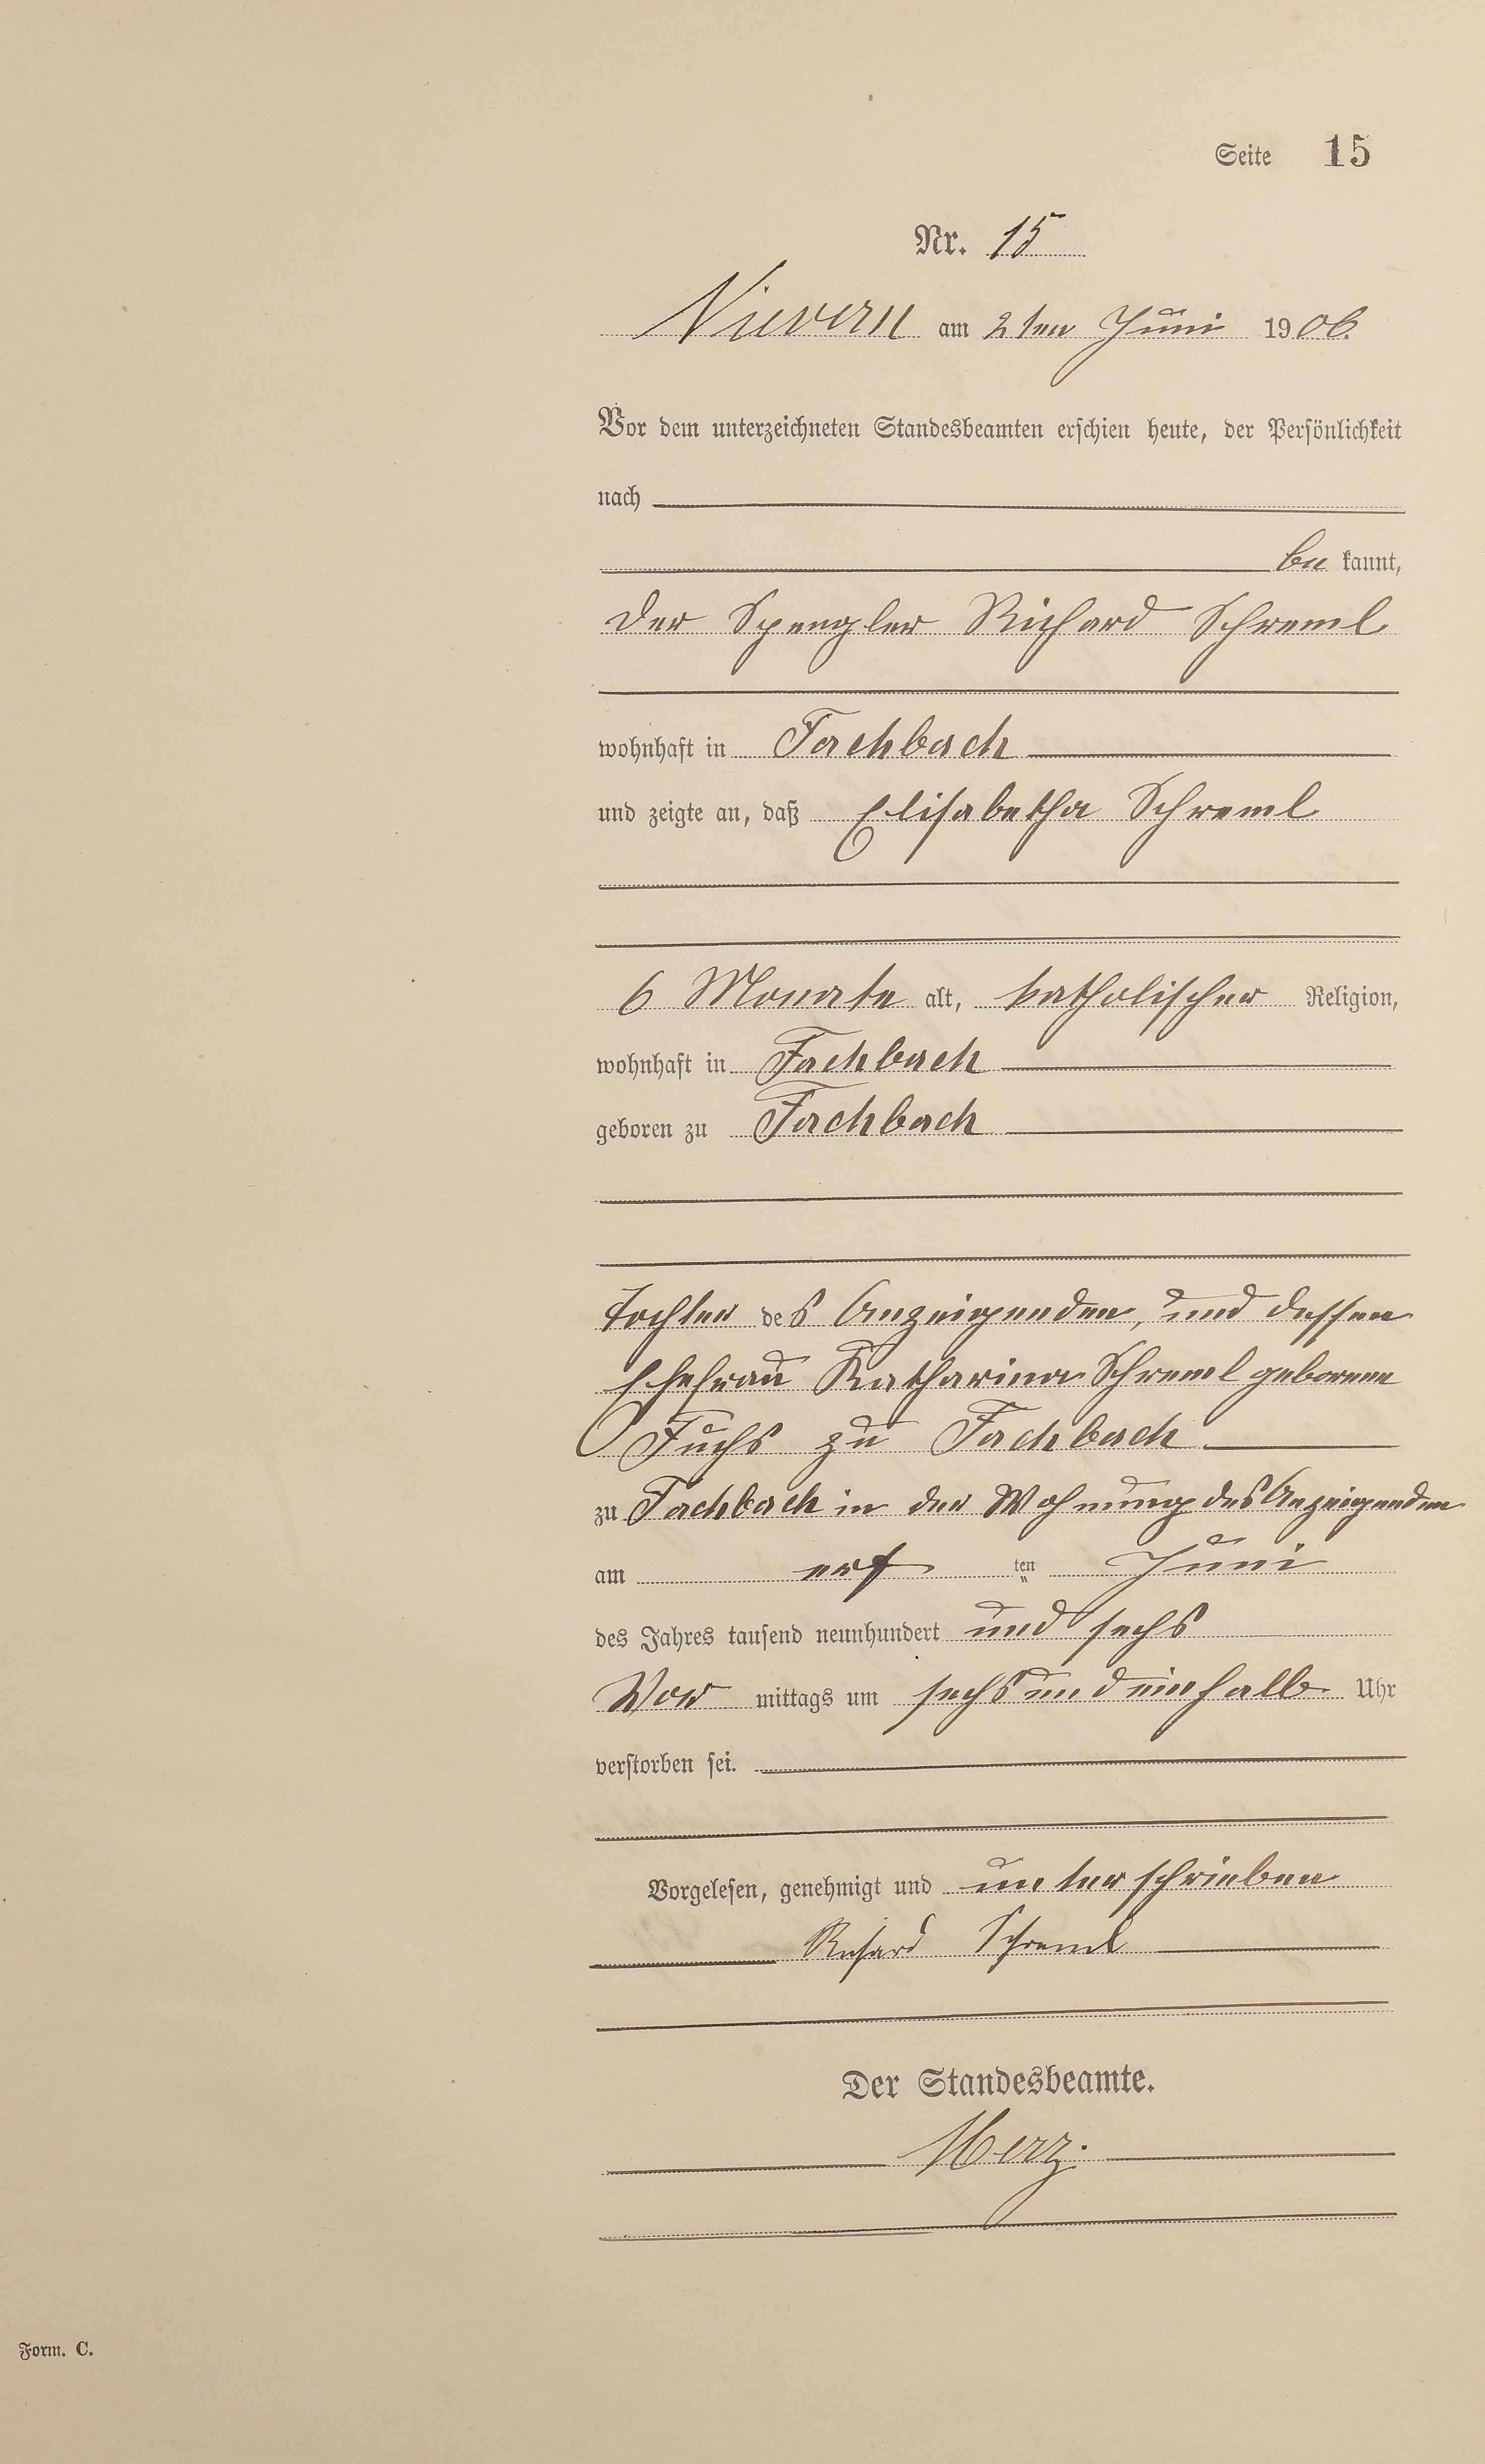 Seite 15
Nr. 15
Nievern am 2ten Juni 1906.
Vor dem unterzeichneten Standesbeamten erschien heute, der Persönlichkeit
nach
be kannt,
der Spengler Richard Schreml
wohnhaft in Fachbach
und zeigte an, daß Elisabetha Schreml
6 Monate alt, katholischer Religion,
wohnhaft in Fachbach
geboren zu Fachbach
Tochter des Anzeigenden, und dessen
Ehefrau Katharina Schreml geborene
Fuchs zu Fachbach
zu Fachbach in der Wohnung des Anzeigenden
am ten Juni
des Jahres tausend neunhundert und sechs
Vor mittags um sechs und ein halb Uhr
verstorben sei.
Vorgelesen, genehmigt und unterschrieben
Richard Schreml
Der Standesbeamte.
Merz.
Form. C.